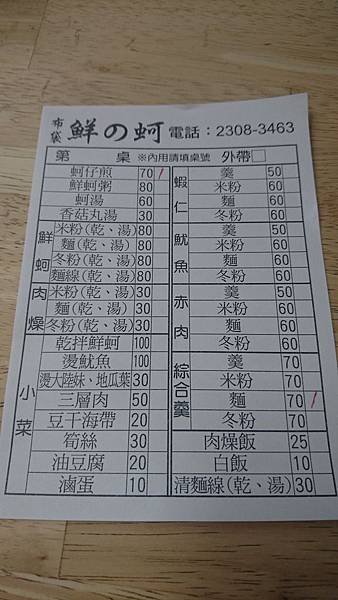 布袋 鮮の蚵 電話：2308-3463
第 桌 ※內用請填桌號 外帶□
蚵仔煎 70
鮮蚵粥 80
蚵湯 60
香菇丸湯 30
鮮蚵
米粉(乾、湯) 80
麵(乾、湯) 80
冬粉(乾、湯) 80
麵線(乾、湯) 80
肉燥
米粉(乾、湯) 30
麵(乾、湯) 30
冬粉(乾、湯) 30
小菜
乾拌鮮蚵 100
燙魷魚 100
燙大陸妹、地瓜葉 30
三層肉 50
豆干海帶 20
筍絲 30
油豆腐 20
滷蛋 10
蝦仁
羹 50
米粉 60
麵 60
冬粉 60
魷魚
羹 50
米粉 60
麵 60
冬粉 60
赤肉
羹 50
米粉 60
麵 60
冬粉 60
綜合羹
羹 70
米粉 70
麵 70
冬粉 70
肉燥飯 25
白飯 10
清麵線(乾、湯) 30